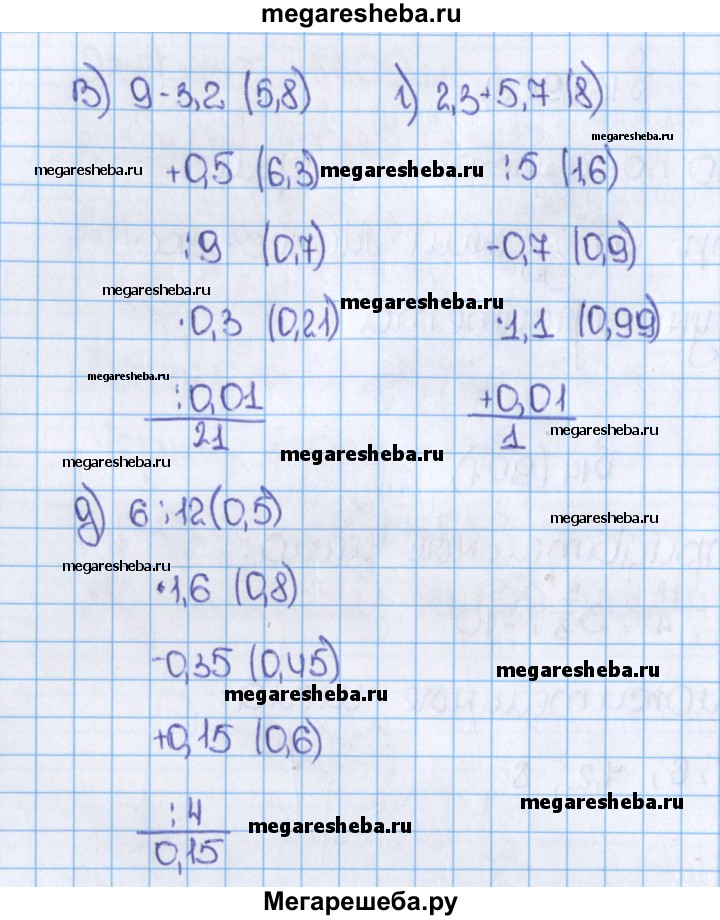 megaresheba.ru
в) 9-3,2 (5,8)
г) 2,3+5,7 (8)
megaresheba.ru
megaresheba.ru
+0,5 (6,3)
megaresheba.ru
:5 (1,6)
:9 (0,7)
-0,7 (0,9)
megaresheba.ru
megaresheba.ru
·0,3 (0,21)
·1,1 (0,99)
megaresheba.ru
:0,01
+0,01
21
1
megaresheba.ru
megaresheba.ru
megaresheba.ru
д) 6:12(0,5)
megaresheba.ru
megaresheba.ru
·1,6 (0,8)
-0,35 (0,45)
megaresheba.ru
megaresheba.ru
+0,15 (0,6)
megaresheba.ru
:4
megaresheba.ru
0,15
Мегарешеба.ру